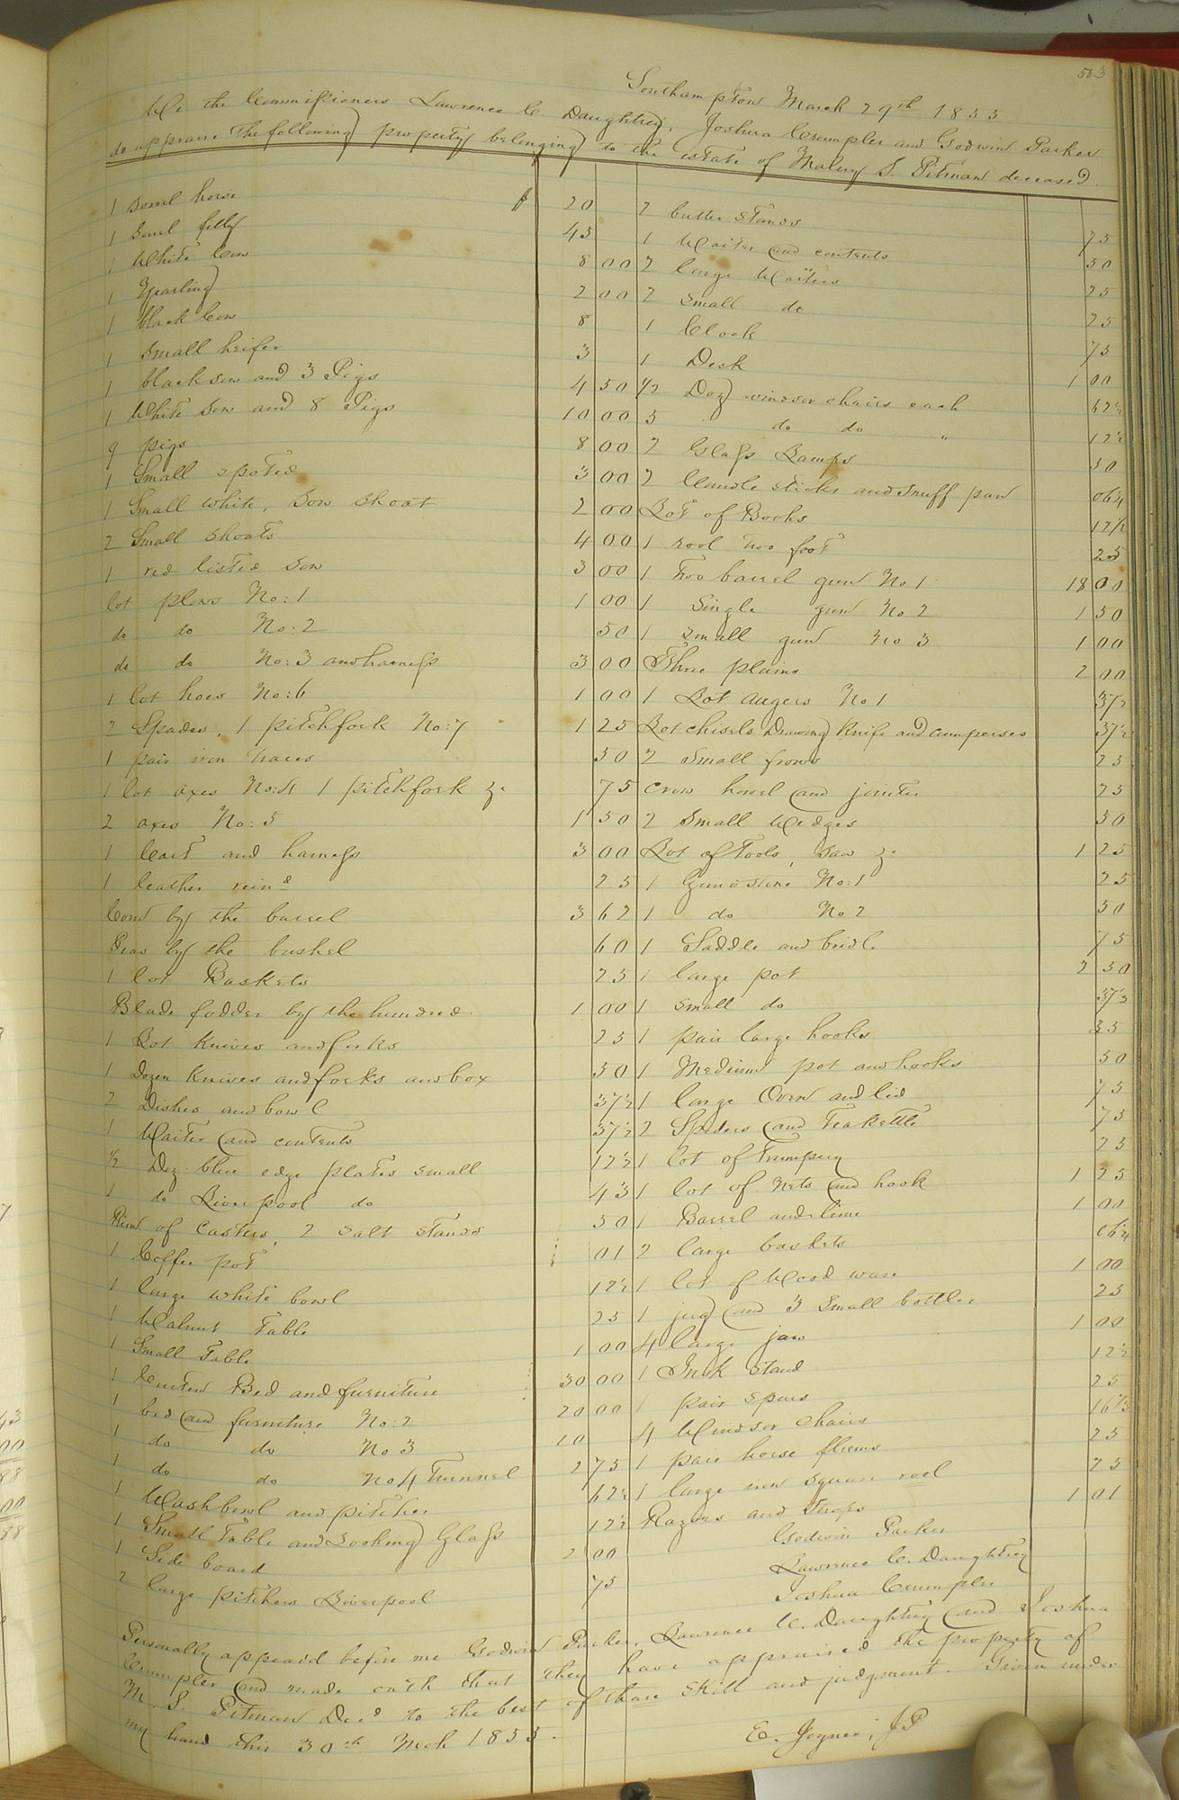 503
Southampton March 29th 1855
We the Commissioners Lawrence C Daughtrey, Joshua Crumpler and Godwin Parker
do appraise the following property belonging to the estate of S. Pitman deceased.
1 sorrel horse $ 20
1 sorrel filly 45
1 White Cow 8 00
1 Yearling 2 00
1 black Cow 8
1 small heifer 3
1 black sow and 3 Pigs 4 50
1 White Sow and 8 Pigs 10 00
9 pigs 8 00
1 Small spoted 3 00
1 Small white, Sow Shoat 2 00
2 Small Shoats 4 00
1 red listed Sow 3 00
lot plows No: 1 1 00
do do No: 2 50
do do No: 3 and harness 3 00
1 lot hoes No: 6 1 00
2 Spades, 1 pitchfork No: 7 1 25
1 pair iron traces 50
1 lot axes No: 4 1 pitchfork &c 75
2 axes No: 5 1 50
1 Cart and harness 3 00
1 leather reins 25
Corn by the barrel 3 62
Peas by the bushel 60
1 lot Baskets 25
Blade fodder by the hundred 1 00
1 Lot Knives and forks 25
1 Dozen Knives and forks and box 50
2 Dishes and bowl 37½
1 Waiter and contents 37½
½ Doz blue edge plates small 12½
1 do Liverpool do 43
of Casters, 2 Salt stands 50
1 Coffee pot 01
1 large white bowl 12½
1 Walnut Table 25
1 Small Table 1 00
1 Bed and furniture 30 00
1 bed and furniture No: 2 20 00
1 do do No 3 10
1 do do No 4 Trunnel 2 75
1 Wash bowl and pitcher 62½
1 Small Table and Looking Glass 12½
1 Side board 2 00
2 large pitchers Liverpool 75
2 butter stands 75
1 Waiter and contents 50
2 large Waiters 25
2 small do 25
1 Clock 75
1 Desk 1 00
½ Doz windsor chairs each 62½
5 do do " 12½
2 Glass Lamps 50
2 Candle sticks and snuff pan 06¼
Lot of Books 12½
1 rool two foot 25
1 two barrel gun No 1 18 00
1 Single gun No 2 1 50
1 small gun No 3 1 00
Three plains 2 00
1 Lot augers No 1 37½
Lot chisels Drawing Knife and cumperses 37½
2 small frows 25
Crow howel and jointer 25
2 small Wedges 50
Lot of Tools, saw &c 1 25
1 Grindstone No: 1 25
1 do No 2 50
1 Saddle and bridle 75
1 large pot 2 50
1 small do 37½
1 pair large hooks 35
1 Medium pot and hooks 50
1 large Oven and lid 75
2 Spiders and Teakettle 75
1 lot of Trumpery 25
1 lot of nets and hook 1 25
1 Barrel and lime 1 00
2 large baskets 06¼
1 lot of Wood ware 1 00
1 jug and 3 small bottles 25
4 large jars 1 00
1 Ink stand 12½
1 pair spurs 25
4 Windsor chairs 16⅔
1 pair horse fleems 25
1 large iron square reel 25
Razors and strops 1 01
Godwin Parker
Lawrence C. Daughtrey
Joshua Crumpler
Personally appeard before me Godwin Parker, Lawrence C. Daughtrey and Joshua
Crumpler and made oath that they have appraised the property of
M. S. Pitman Decd to the best of thare skill and judgment. Given under
my hand this 30th Mch 1855.
E. Joyner, JP